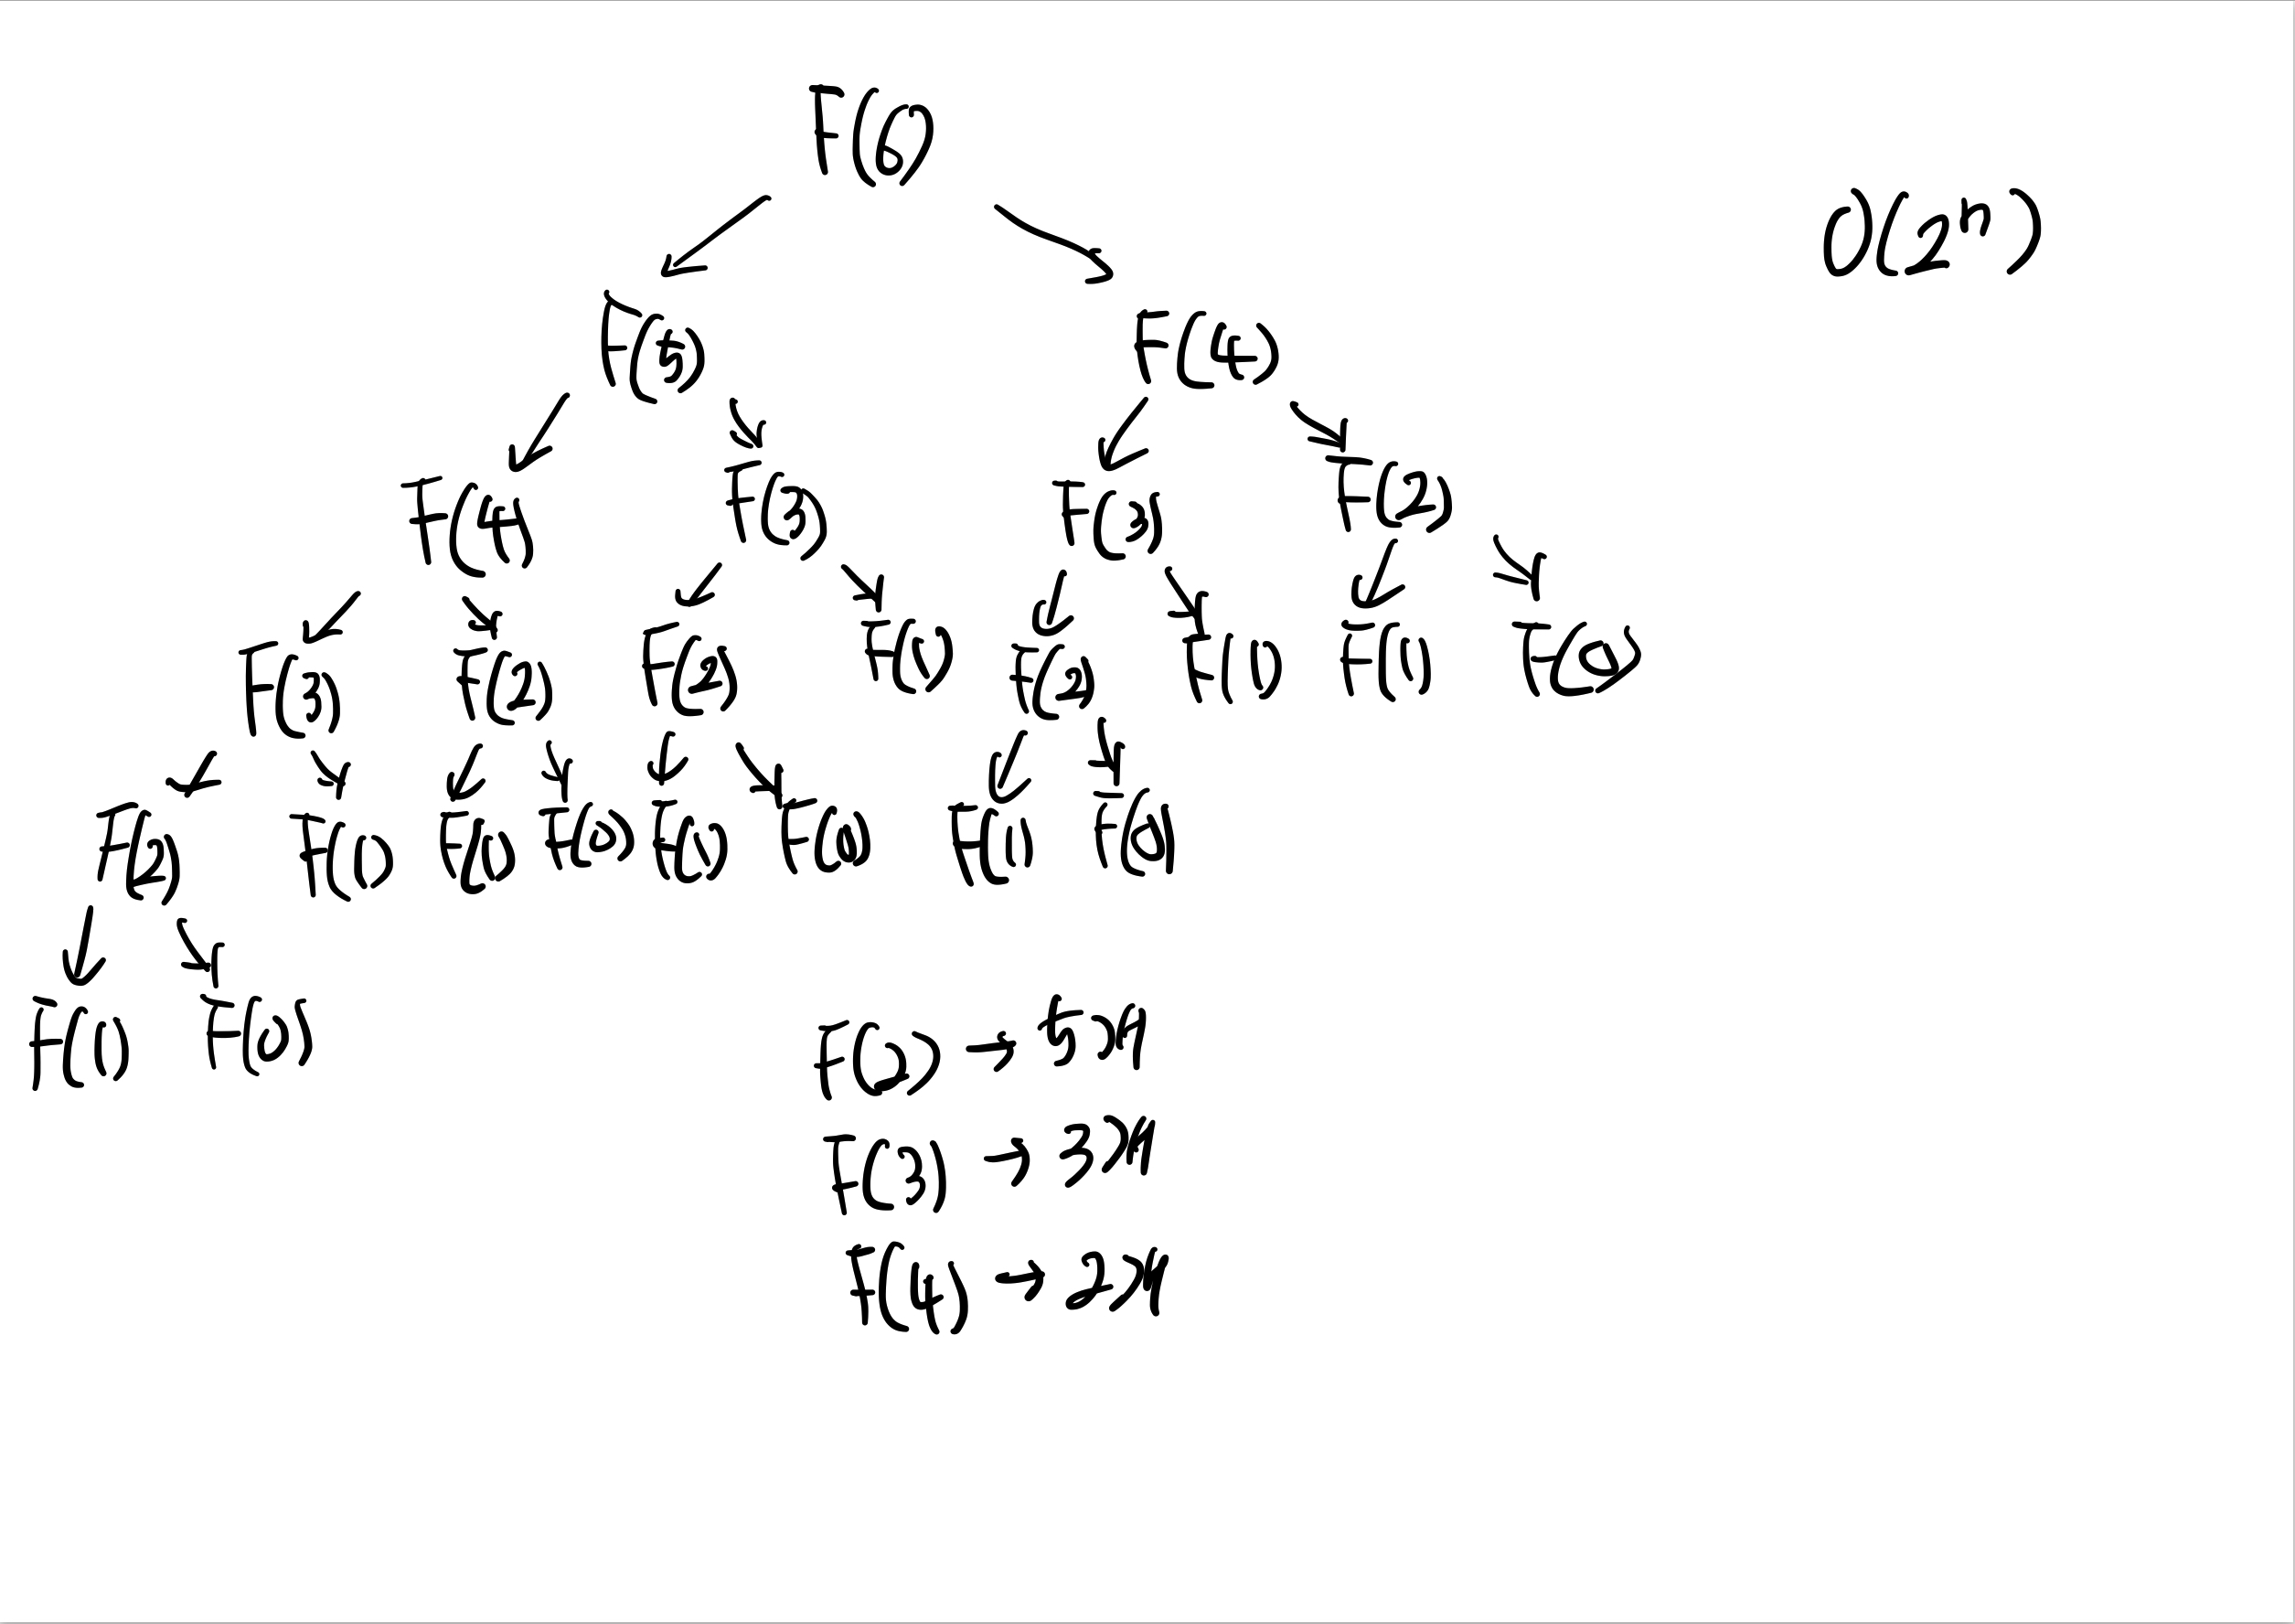 F(6)
O(2ⁿ)
F(5) F(4)
F(4) F(3) F(3) F(2)
F(3) F(2) F(2) F(1) F(2) F(1) F(1) F(0)
F(2) F(1) F(1) F(0) F(1) F(0) F(1) F(0)
F(1) F(0)
F(2) → 5개
F(3) → 3개
F(4) → 2개